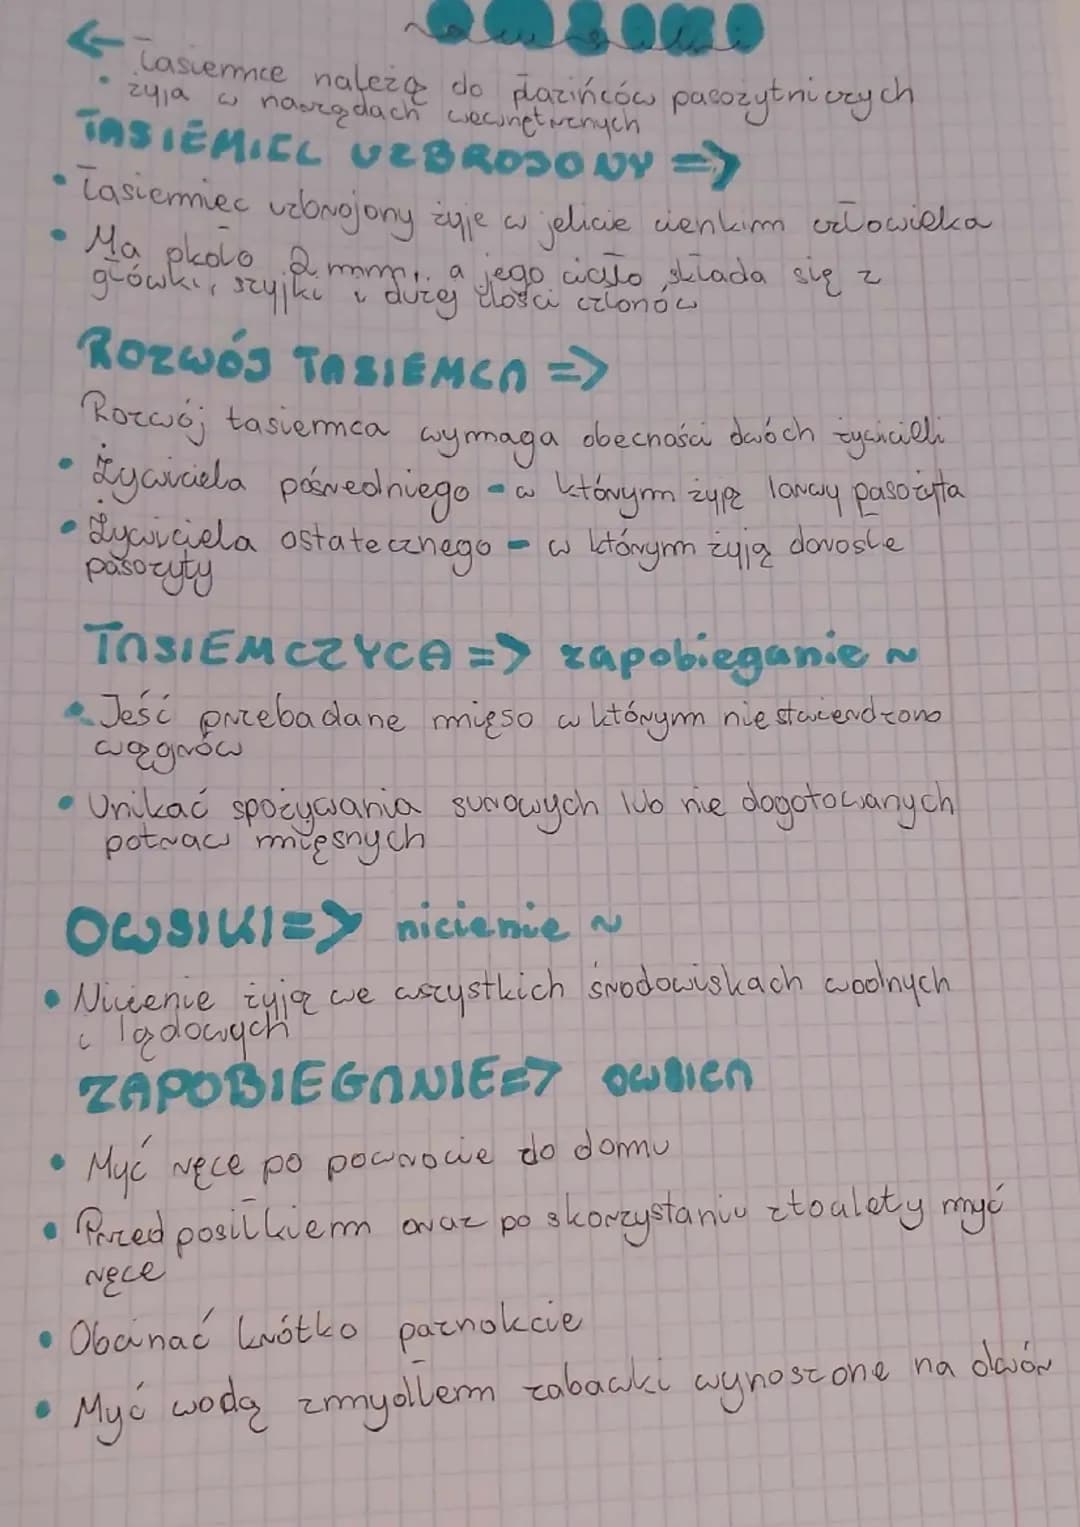 Tasiemce należą do płazińców pasożytniczych
• żyją w narządach wewnętrznych
TASIEMIEC UZBROJONY =>
• Tasiemiec uzbrojony żyje w jelicie cienkim człowieka
• Ma około 2 mm, a jego ciało składa się z
główki, szyjki i dużej ilości członów
ROZWÓJ TASIEMCA =>
Rozwój tasiemca wymaga obecności dwóch żywicieli
• Żywiciela pośredniego - w którym żyją larwy pasożyta
• Żywiciela ostatecznego - w którym żyją dorosłe
pasożyty
TASIEMCZYCA => zapobieganie ~
• Jeść przebadane mięso w którym nie stwierdzono
wągrów
• Unikać spożywania surowych lub nie dogotowanych
potraw mięsnych
OWSIKI => nicienie ~
• Nicienie żyją we wszystkich środowiskach wodnych
i lądowych
ZAPOBIEGANIE => owsica
• Myć ręce po powrocie do domu
• Przed posiłkiem oraz po skorzystaniu z toalety myć
ręce
• Obcinać krótko paznokcie
• Myć wodą z mydłem zabawki wynoszone na dwór